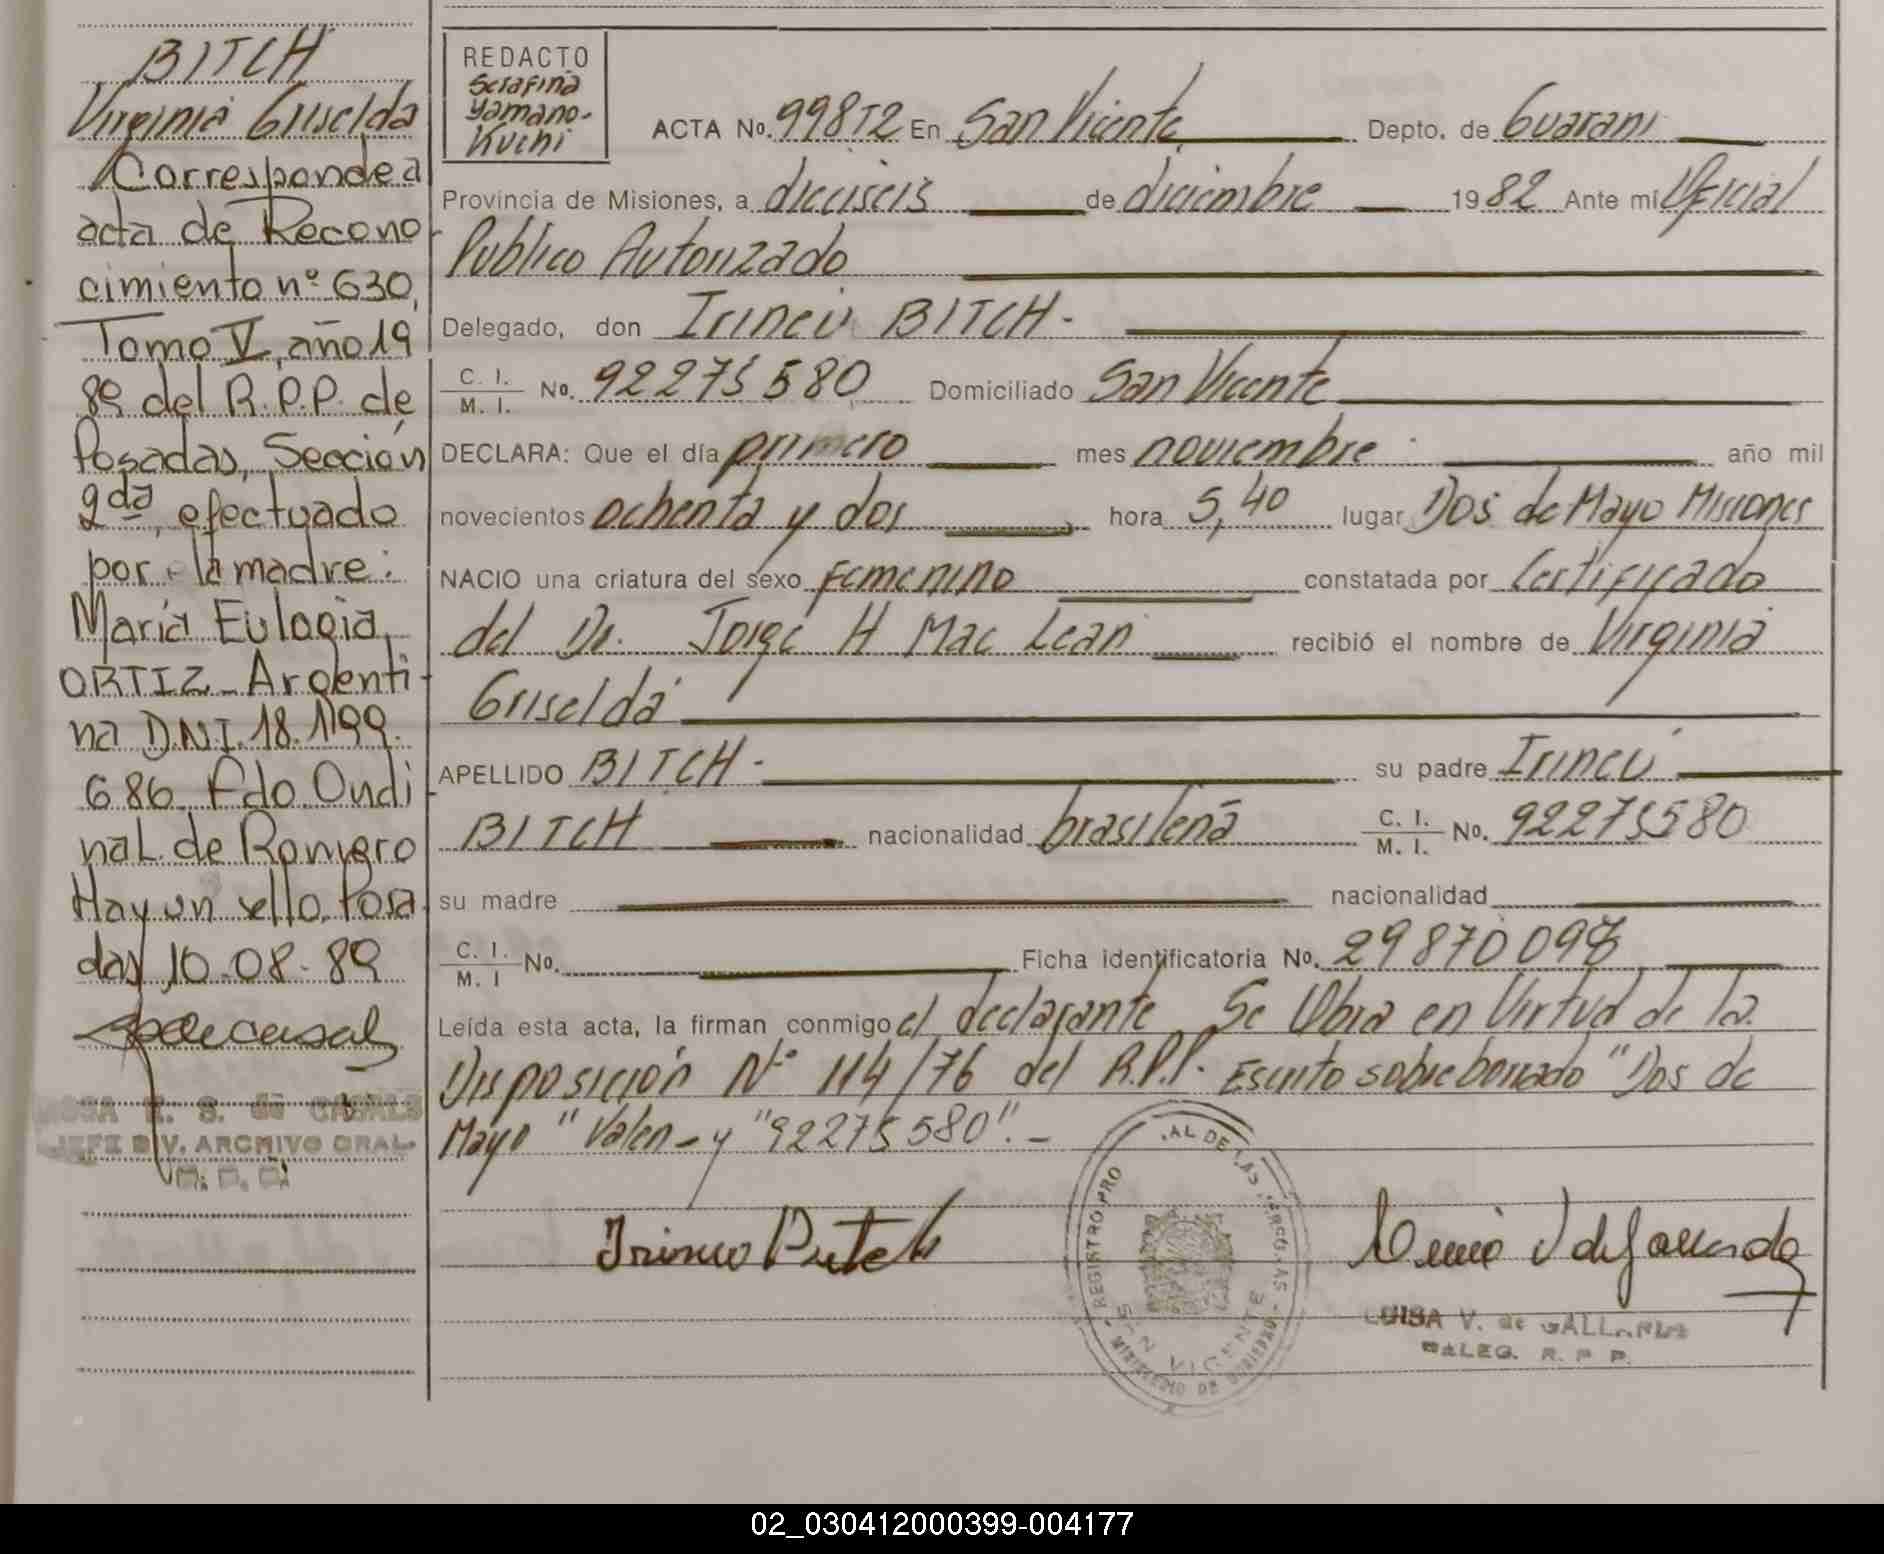 BITCH
Virginia Griselda
Corresponde a
acta de Recono
cimiento nº 630,
Tomo V, año 19
89 del R.P.P. de
Posadas, Sección
2da, efectuado
por la madre:
María Eulogia
ORTIZ Argenti-
na D.N.I. 18.199.
686. Fdo. Ondi
nal de Romero
Hay un sello. Posa
das, 10-08-89
ROSA H. S. de CASALS
JEFE DIV. ARCHIVO GRAL.
R. P. P.
REDACTO
Serafina
Yamano-
Kuchi
ACTA No. 998T2 En San Vicente Depto. de Guarani
Provincia de Misiones, a dieciseis de diciembre 1982 Ante mi Oficial
Publico Autorizado
Delegado, don Irineu BITCH-
C. I. / M. I. No. 92275580 Domiciliado San Vicente
DECLARA: Que el día primero mes noviembre año mil
novecientos ochenta y dos hora 5,40 lugar Dos de Mayo Misiones
NACIO una criatura del sexo Femenino constatada por Certificado
del Dr. Jorge H Mac Lean recibió el nombre de Virginia
Griselda
APELLIDO BITCH- su padre Irineu
BITCH nacionalidad brasileña C. I. / M. I. No. 92275580
su madre nacionalidad
C. I. / M. I No. Ficha identificatoria No. 29870098
Leída esta acta, la firman conmigo el declarante Se Obra en Virtud de la
Disposición Nº 114/76 del R.P.P. Escrito sobre borrado "Dos de
Mayo" Valen- y "92275580".-
REGISTRO PRO AL DE LAS PERSONAS
SAN VICENTE
MINISTERIO DE GOBIERNO
LUISA V. de GALLARDO
DALEG. R. P P.
02_030412000399-004177